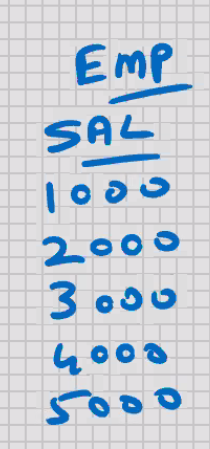 EMP
SAL
1000
2000
3000
4000
5000